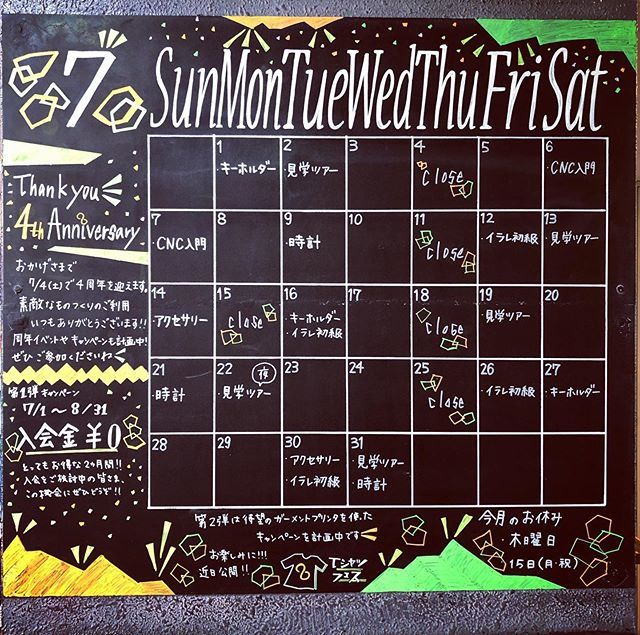 7
Sun Mon Tue Wed Thu Fri Sat
Thank you
4th Anniversary
おかげさまで
7/4(土)で4周年を迎えます。
素敵なものつくりのご利用
いつもありがとうございます!!
周年イベントやキャンペーンも計画中!
ぜひご参加くださいね
第1弾キャンペーン
7/1～8/31
入会金¥0
とってもお得な2ヶ月間!!
入会をご検討中の皆さま、
この機会にぜひどうぞ!!
1
・キーホルダー
2
・見学ツアー
3
4
close
5
6
・CNC入門
7
・CNC入門
8
9
・時計
10
11
close
12
・イラレ初級
13
・見学ツアー
14
・アクセサリー
15
close
16
・キーホルダー
・イラレ初級
17
18
close
19
・見学ツアー
20
21
・時計
22
夜
・見学ツアー
23
24
25
close
26
・イラレ初級
27
・キーホルダー
28
29
30
・アクセサリー
・イラレ初級
31
・見学ツアー
・時計
第2弾は待望のガーメントプリンタを使った
キャンペーンを計画中です
お楽しみに!!!
近日公開!!
Tシャツ
フェス
今月のお休み
木曜日
15日(月・祝)